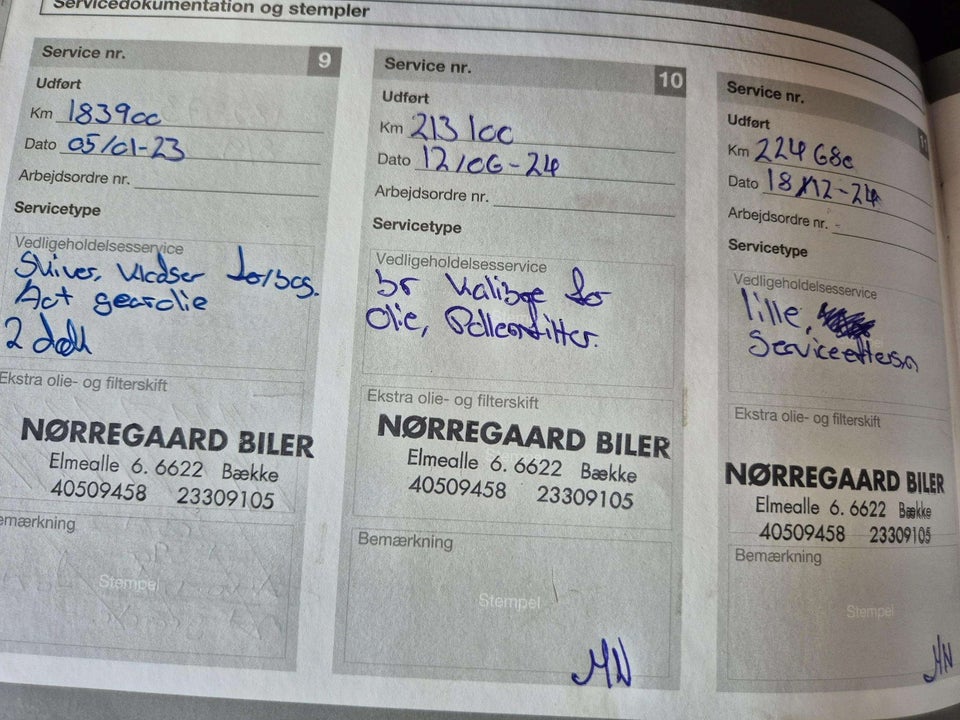 Servicedokumentation og stempler
Service nr. 9
Udført
Km 183900
Dato 05/01-23
Arbejdsordre nr.
Servicetype
Vedligeholdelsesservice
Skiver, klodser for/bag.
Aut gearolie
2 dæk
Ekstra olie- og filterskift
NØRREGAARD BILER
Elmealle 6. 6622 Bække
40509458 23309105
emærkning
Stempel
Service nr. 10
Udført
Km 213100
Dato 12/06-24
Arbejdsordre nr.
Servicetype
Vedligeholdelsesservice
br kalibge for
olie, Pollenfilter.
Ekstra olie- og filterskift
NØRREGAARD BILER
Elmealle 6. 6622 Bække
40509458 23309105
Bemærkning
Stempel
MN
Service nr. 11
Udført
Km 224680
Dato 18/12-24
Arbejdsordre nr.
Servicetype
Vedligeholdelsesservice
lille,
Serviceeftersyn
Ekstra olie- og filterskift
NØRREGAARD BILER
Elmealle 6. 6622 Bække
40509458 23309105
Bemærkning
Stempel
MN